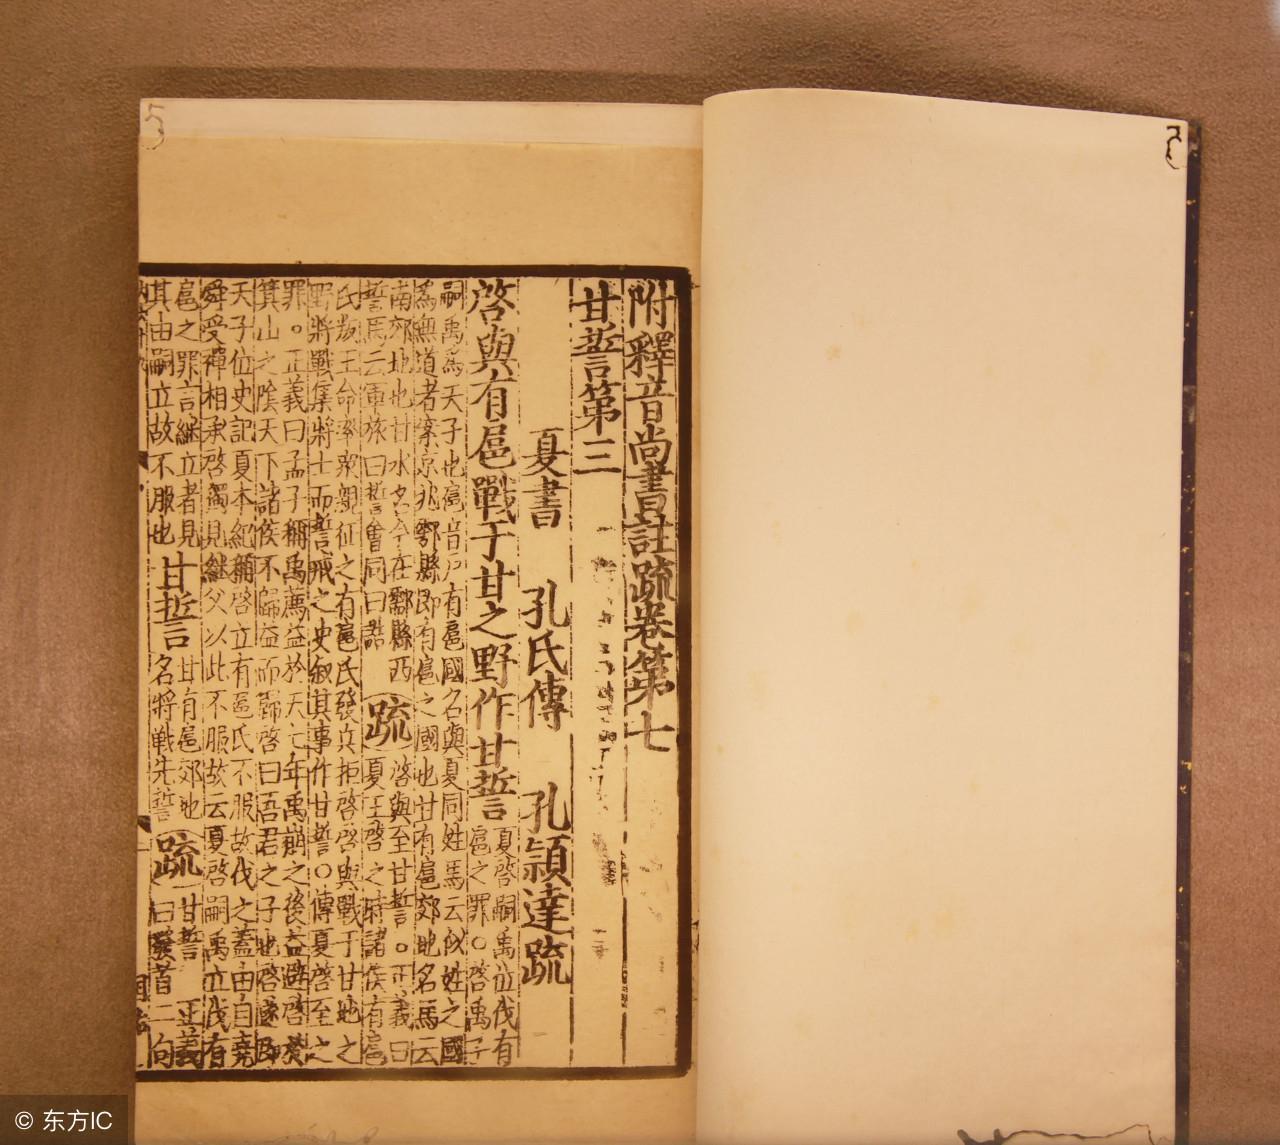 附釋音尚書註疏卷第七
甘誓第三
夏書 孔氏傳 孔頴達疏
啓與有扈戰于甘之野作甘誓
夏啓嗣禹位伐有
扈之罪○啓禹子
嗣禹為天子也扈音戶有扈國名與夏同姓馬云姒姓之國
為無道者案京兆鄠縣即有扈之國也甘有扈郊地名馬云
南郊地也甘水名今在鄠縣西
誓馬云軍旅曰誓會同曰誥
疏
啓與至甘誓○正義曰
夏王啓之時諸侯有扈
氏叛王命率衆親征之有扈氏發兵拒啓啓與戰于甘地之
野將戰集將士而誓戒之史叙其事作甘誓○傳夏啓至之
罪○正義曰孟子稱禹薦益於天七年禹崩之後益避啓於
箕山之陰天下諸侯不歸益而歸啓曰吾君之子也啓遂即
天子位史記夏本紀稱啓立有扈氏不服故伐之蓋由自堯
舜受禪相承啓獨見繼父以此不服故云夏啓嗣禹立伐有
扈之罪言繼立者見
其由嗣立故不服也
甘誓
甘有扈郊地
名將戰先誓
疏
甘誓 正義
曰發首二句
5